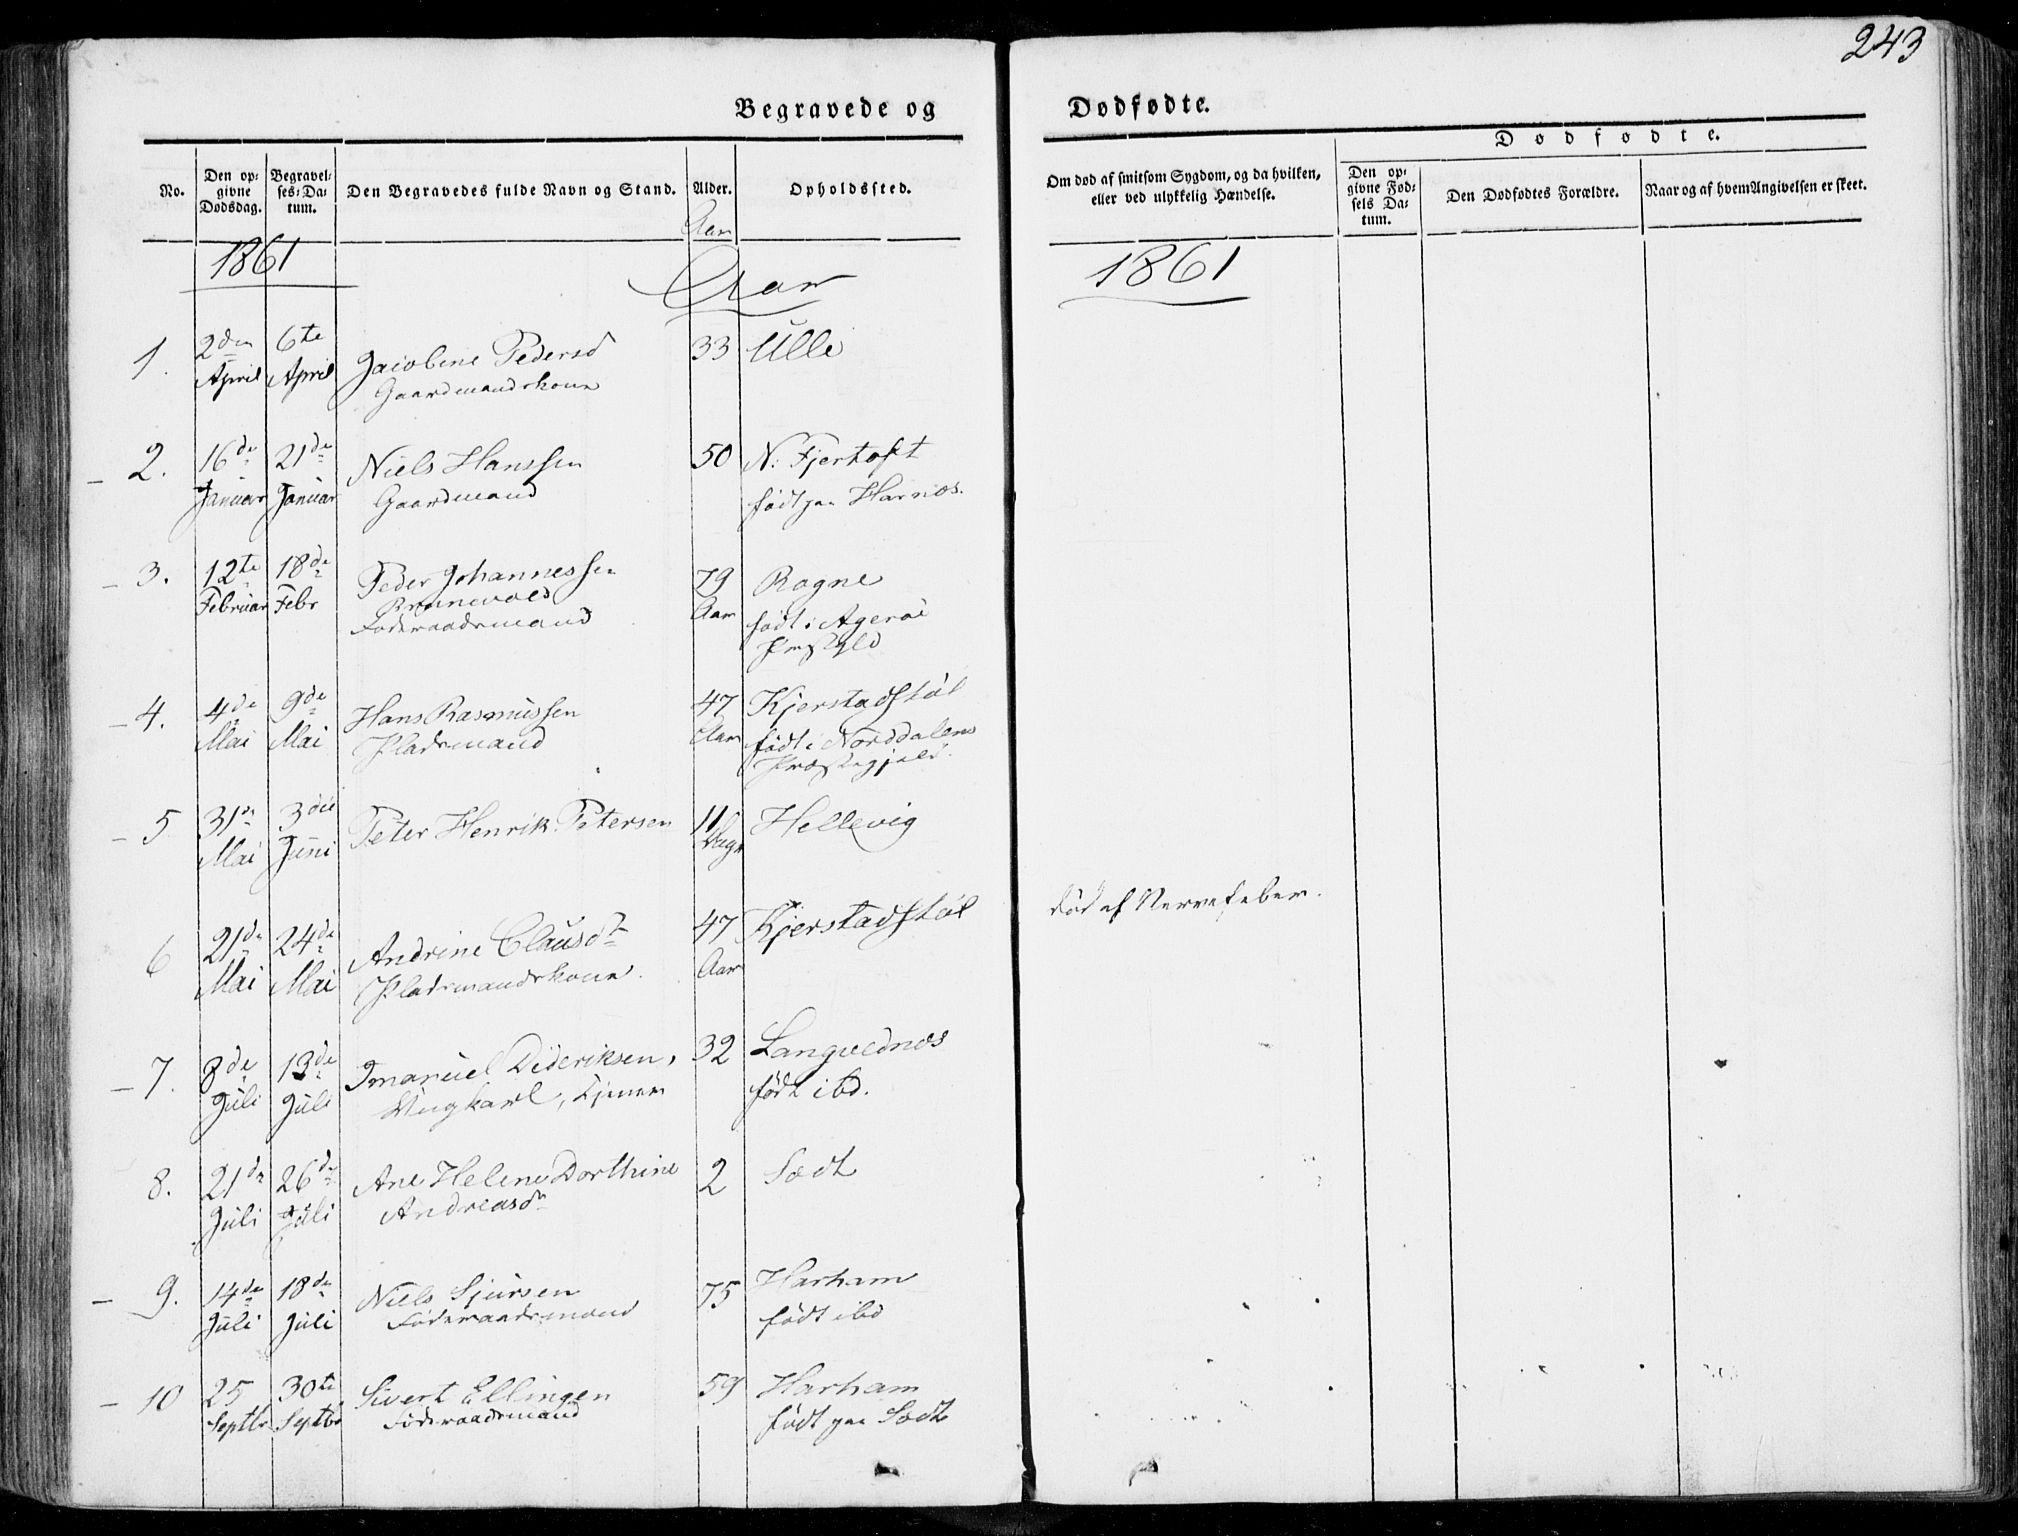 243
Begravede og Dødfødte.
No.
Den opgivne Dødsdag.
Begravelses-Datum.
Den Begravedes fulde Navn og Stand.
Alder.
Aar
Opholdssted.
Om død af smitsom Sygdom, og da hvilken, eller ved ulykkelig Hændelse.
Dødfødte.
Den opgivne Fødsels Datum.
Den Dødfødtes Forældre.
Naar og af hvem Angivelsen er skeet.
1861 Aar 1861
1. 2den April 6te April Jacobine Pedersd 33 Ulle
Gaardmandskone
2. 16de Januar 21de Januar Niels Hanssen 50 N. Fjertoft
Gaardmand født paa Harnæs.
3. 12te Februar 18de Febr Peder Johannessen 79 Aar Rogne
Brunevold født i Agerøe
Føderaadsmand Præstgld
4. 4de Mai 9de Mai Hans Rasmussen 47 Aar Kjerstadstøl
Pladsmand født i Norddalens
Præstegjeld.
5 31te Mai 3die Juni Peter Henrik Petersen 11 Dage Hellevig
6 21de Mai 24de Mai Andrine Clausdr 47 Aar Kjerstadstøl død af Nervefeber.
Pladsmandskone.
7. 8de Juli 13de Juli Imanuel Dideriksen, 32 Langvednæs
Ungkarl, Tjener født ibd.
8. 21de Juli 26de Juli Ane Helene Dorthine 2 Sædt
Andreasdr
9. 14de Juli 18de Juli Niels Sjursen 75 Harham
Føderaadsmand født ibd
10 25 Septbr 30te Septbr Sivert Ellingsen 59 Harham
Føderaadsmand født paa Sædt